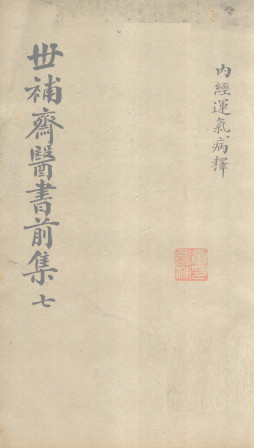 內經運氣病釋
世補齋醫書前集七